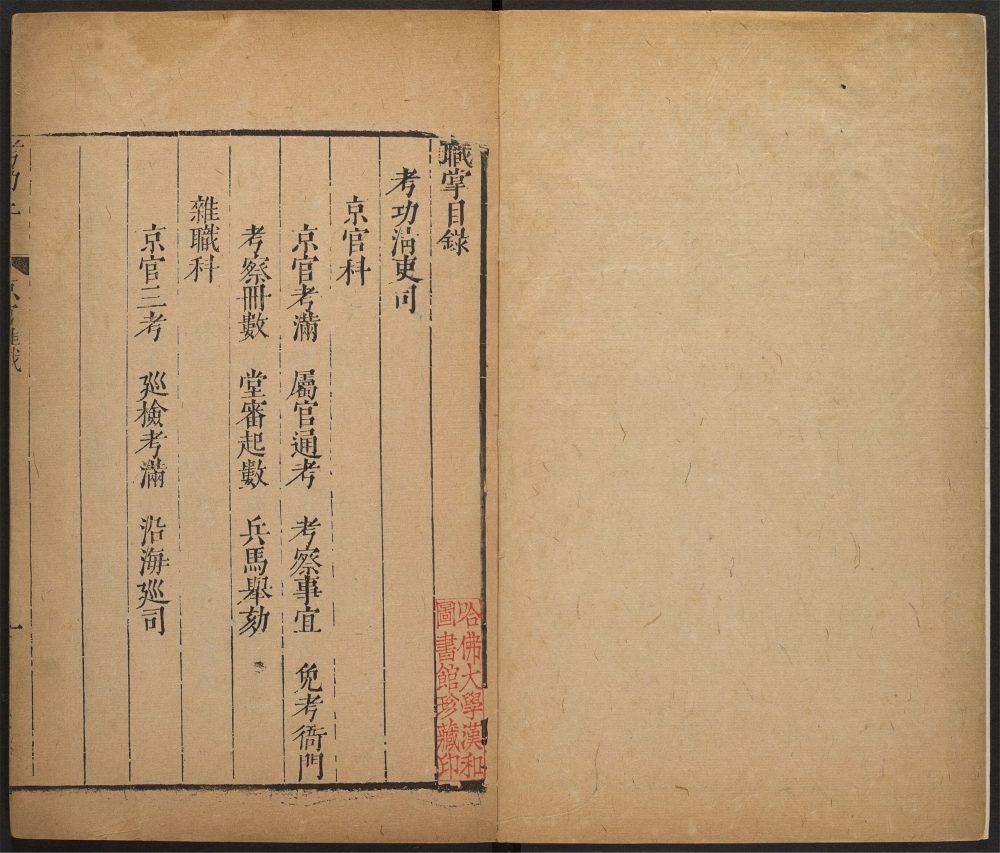 職掌目錄
考功清吏司
京官科
京官考滿 屬官通考 考察事宜 免考衙門
考察冊數 堂審起數 兵馬舉劾
雜職科
京官三考 廵檢考滿 沿海廵司
哈佛大學漢和
圖書館珍藏印